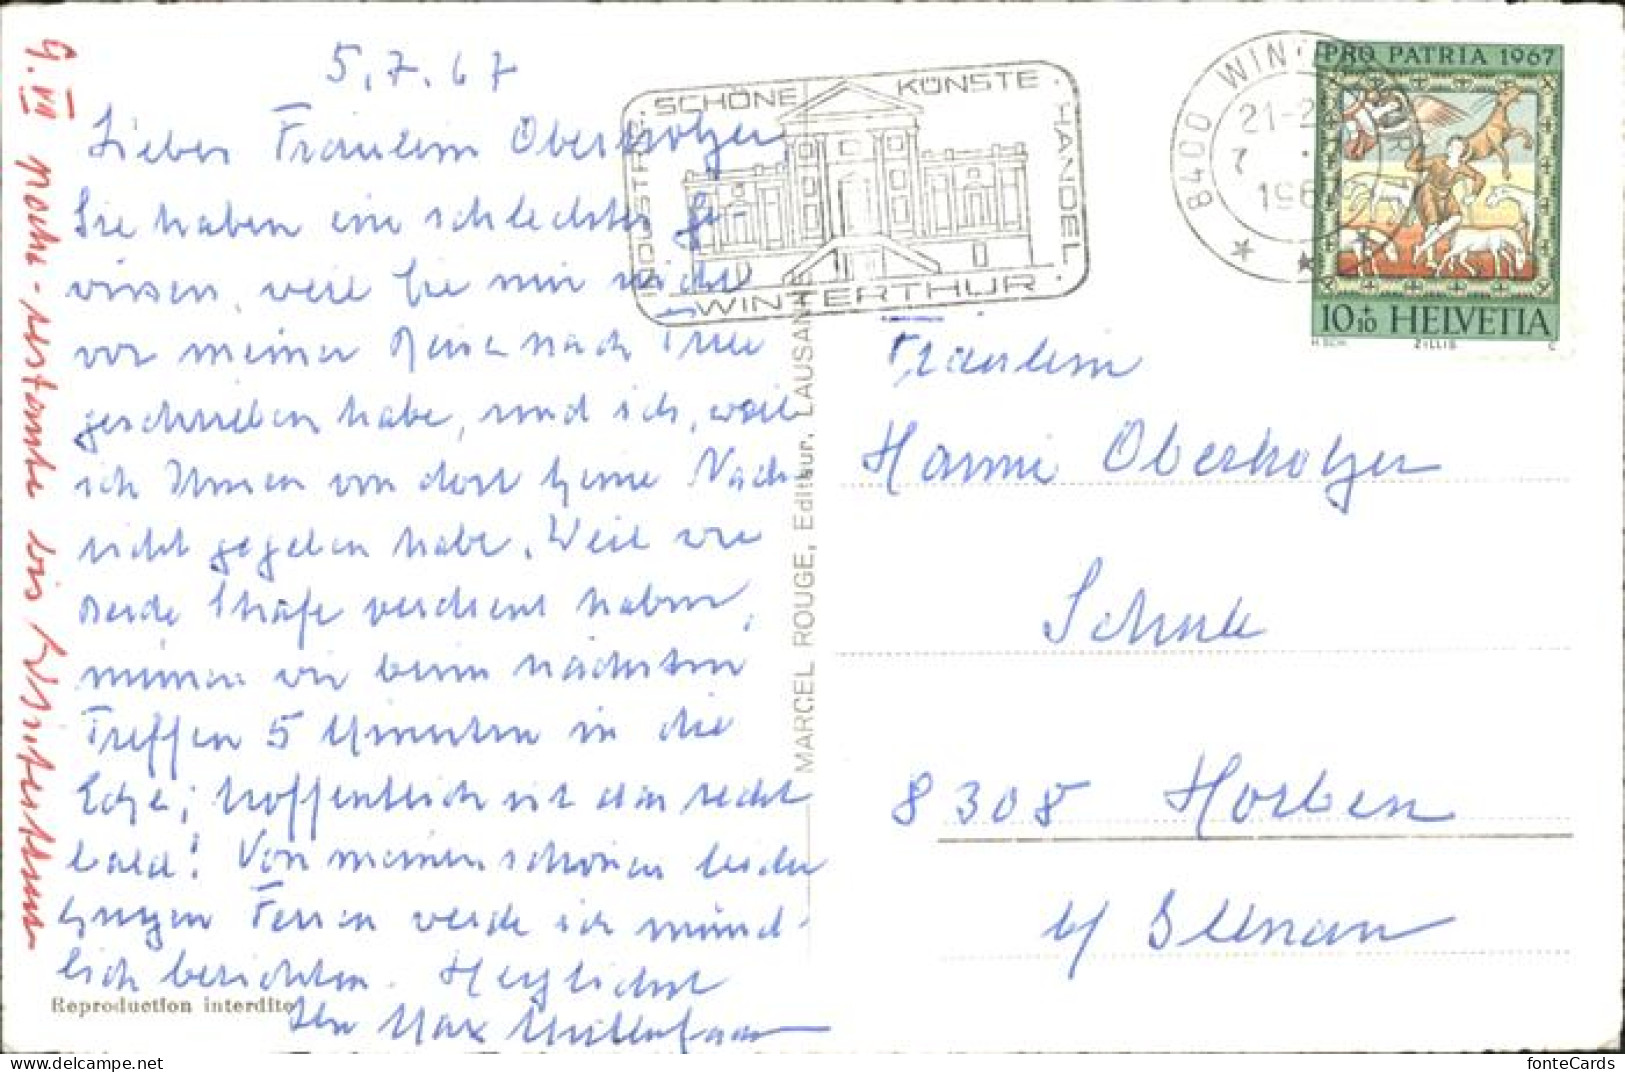 5.7.67
Liebes Fräulein Oberholzer
Sie haben ein schlechtes Ge-
wissen, weil Sie mir nicht
vor meiner Reise nach
geschrieben habe, und ich, weil
ich Ihnen von dort keine Nach-
richt gegeben habe. Weil wir
beide Strafe verdient haben,
müssen wir beim nächsten
Treffen 5 Minuten in die
Ecke; hoffentlich ist das recht
bald! Von meinen schönen leider
kurzen Ferien werde ich münd-
lich berichten. Herzlichst
Ihr Max
9. VII poste-restante bis Winterthur
Reproduction interdite
MARCEL ROUGE, Editeur, LAUSANNE
INDUSTRIE · SCHÖNE KÜNSTE · HANDEL ·
WINTERTHUR
8400 WINTERTHUR
21-2
7.
1967
PRO PATRIA 1967
10+10 HELVETIA
H.SCH. ZILLIS C
Fräulein
Hanni Oberholzer
Schule
8308 Horben
b/ Illnau
fonteCards